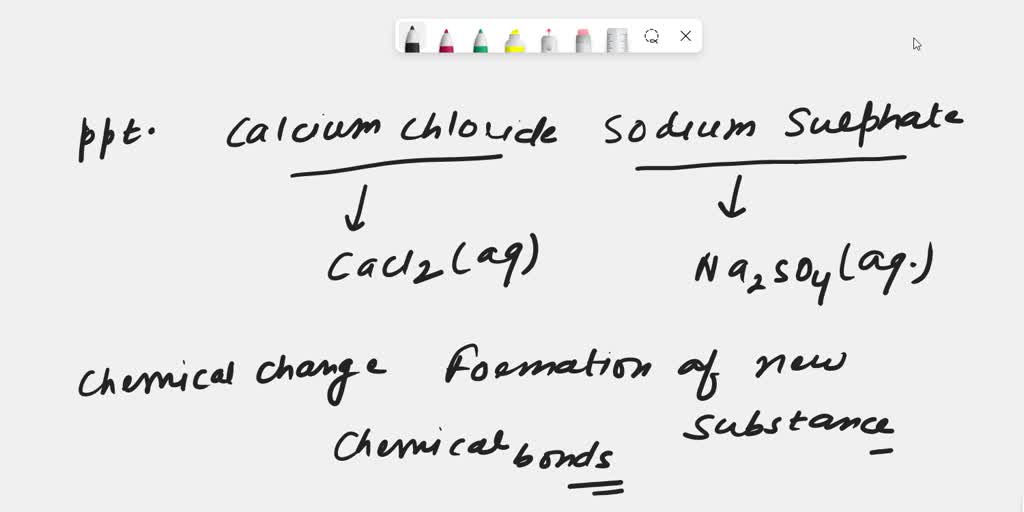 ppt. Calcium chloride Sodium Sulphate
CaCl2(aq) Na2SO4(aq.)
Chemical change Formation of new
Chemical bonds substance